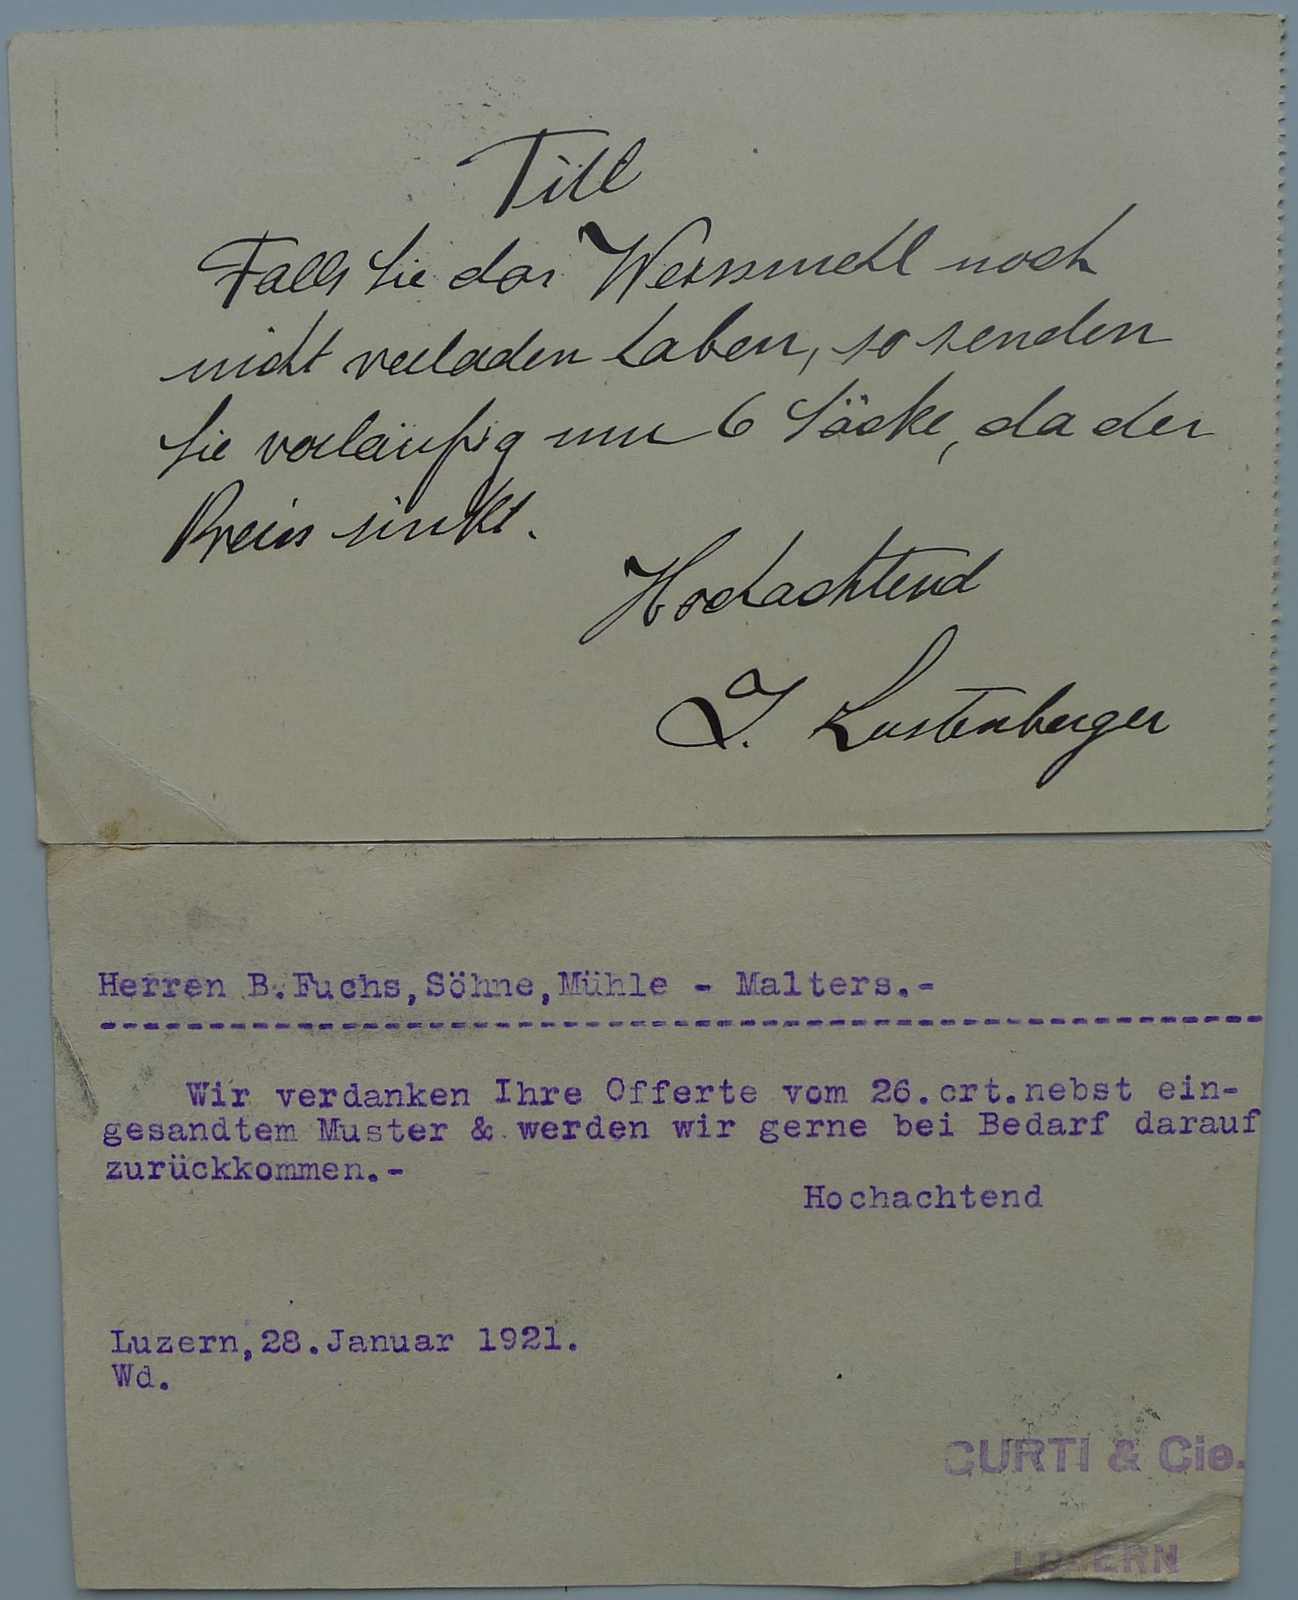 Titl
Falls Sie das Weissmehl noch
nicht verladen haben, so senden
Sie vorläufig nur 6 Säcke, da der
Preis sinkt.
Hochachtend
J. Lustenberger
Herren B.Fuchs,Söhne,Mühle - Malters.-
Wir verdanken Ihre Offerte vom 26.crt.nebst ein-
gesandtem Muster & werden wir gerne bei Bedarf darauf
zurückkommen.-
Hochachtend
Luzern,28.Januar 1921.
Wd.
CURTI & Cie.
LUZERN